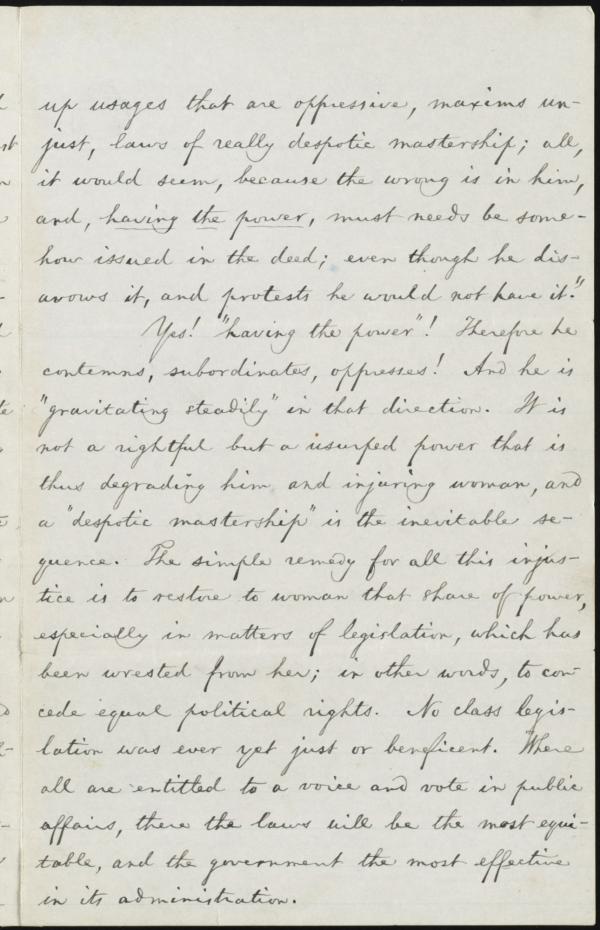 up usages that are oppressive, maxims un-
just, laws of really despotic mastership; all,
it would seem, because the wrong is in him,
and, having the power, must needs be some-
how issued in the deed; even though he dis-
avows it, and protests he would not have it."
Yes! "having the power"! Therefore he
contemns, subordinates, oppresses! And he is
"gravitating steadily" in that direction. It is
not a rightful but a usurped power that is
thus degrading him and injuring woman, and
a "despotic mastership" is the inevitable se-
quence. The simple remedy for all this injus-
tice is to restore to woman that share of power,
especially in matters of legislation, which has
been wrested from her; in other words, to con-
cede equal political rights. No class legis-
lation was ever yet just or beneficent. Where
all are entitled to a voice and vote in public
affairs, there the laws will be the most equi-
table, and the government the most effective
in its administration.